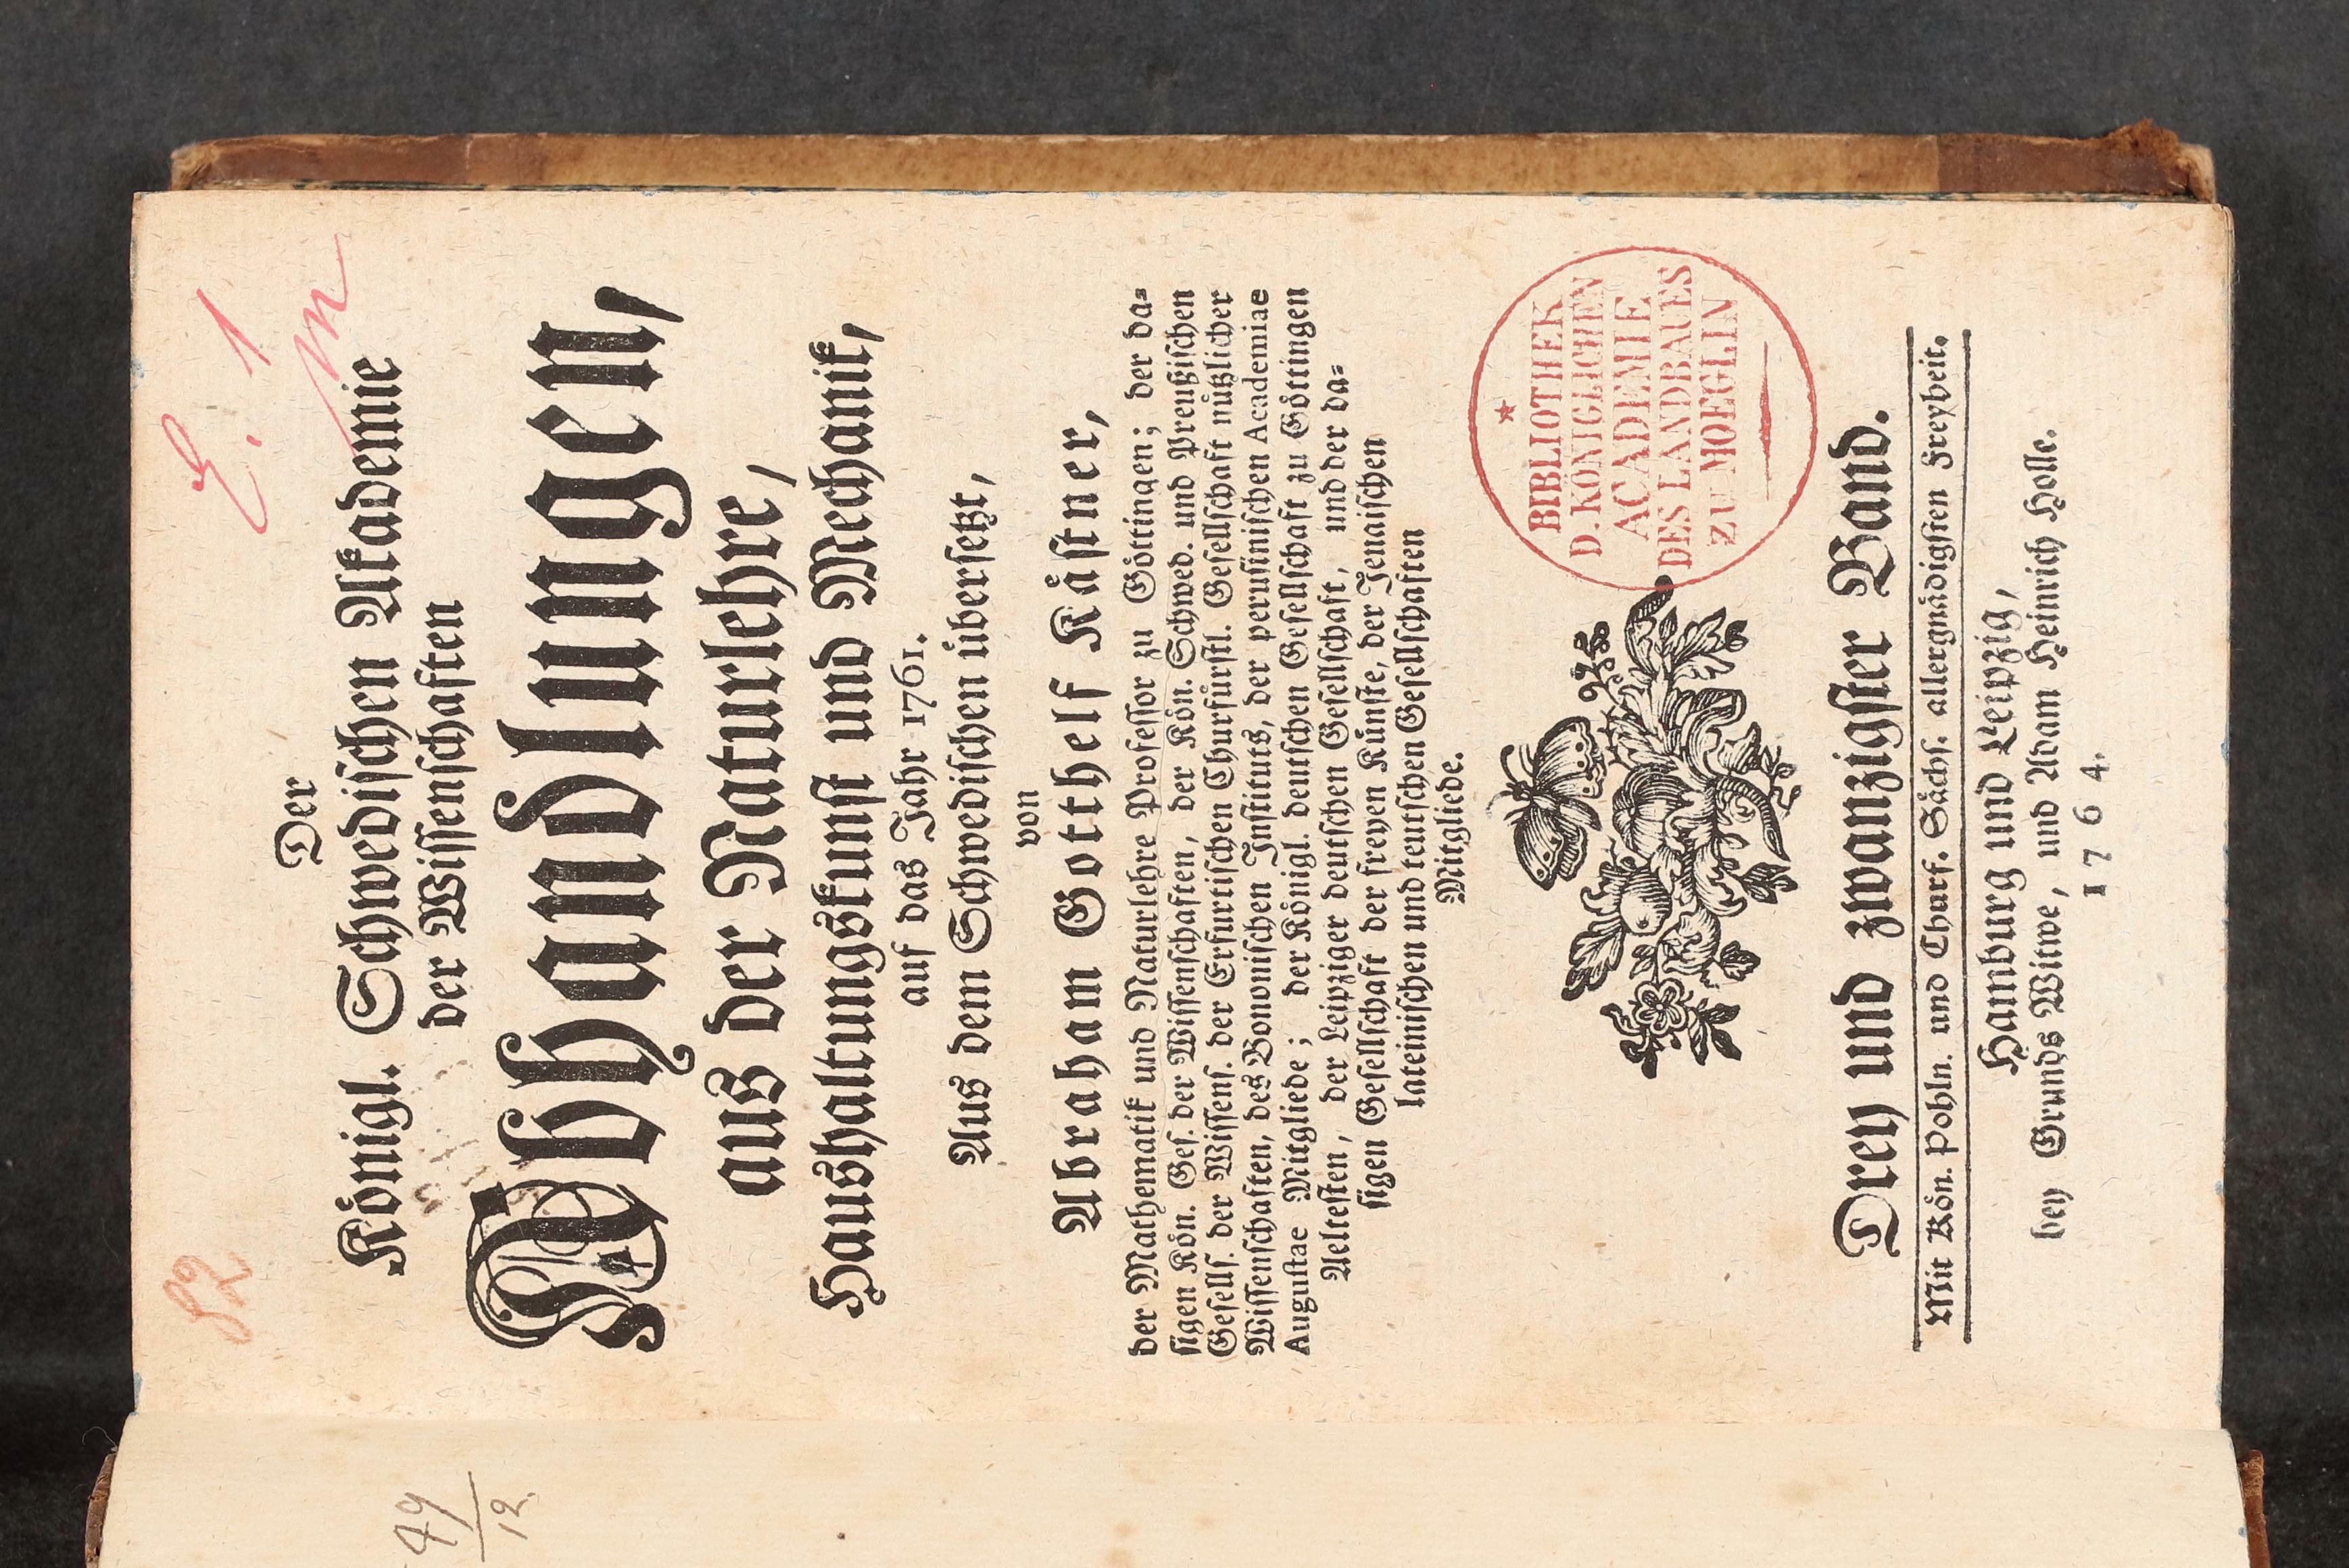 82
E. 1
m
Der
Königl. Schwedischen Akademie
der Wissenschaften
Abhandlungen,
aus der Naturlehre,
Haushaltungskunst und Mechanik,
auf das Jahr 1761.
Aus dem Schwedischen übersetzt,
von
Abraham Gotthelf Kästner,
der Mathematik und Naturlehre Professor zu Göttingen; der da-
sigen Kön. Ges. der Wissenschaften, der Kön. Schwed. und Preußischen
Gesells. der Wissens. der Erfurtischen Churfürstl. Gesellschaft nützlicher
Wissenschaften, des Bononischen Instituts, der perusinischen Academiae
Augustae Mitgliede; der Königl. deutschen Gesellschaft zu Göttingen
Aeltesten, der Leipziger deutschen Gesellschaft, und der da-
sigen Gesellschaft der freyen Künste, der Jenaischen
lateinischen und teutschen Gesellschaften
Mitgliede.
BIBLIOTHEK
D. KÖNIGLICHEN
ACADEMIE
DES LANDBAUES
ZU MOEGLIN
Drey und zwanzigster Band.
Mit Kön. Pohln. und Churf. Sächs. allergnädigsten Freyheit.
Hamburg und Leipzig,
bey Grunds Witwe, und Adam Heinrich Holle.
1764.
49
12.